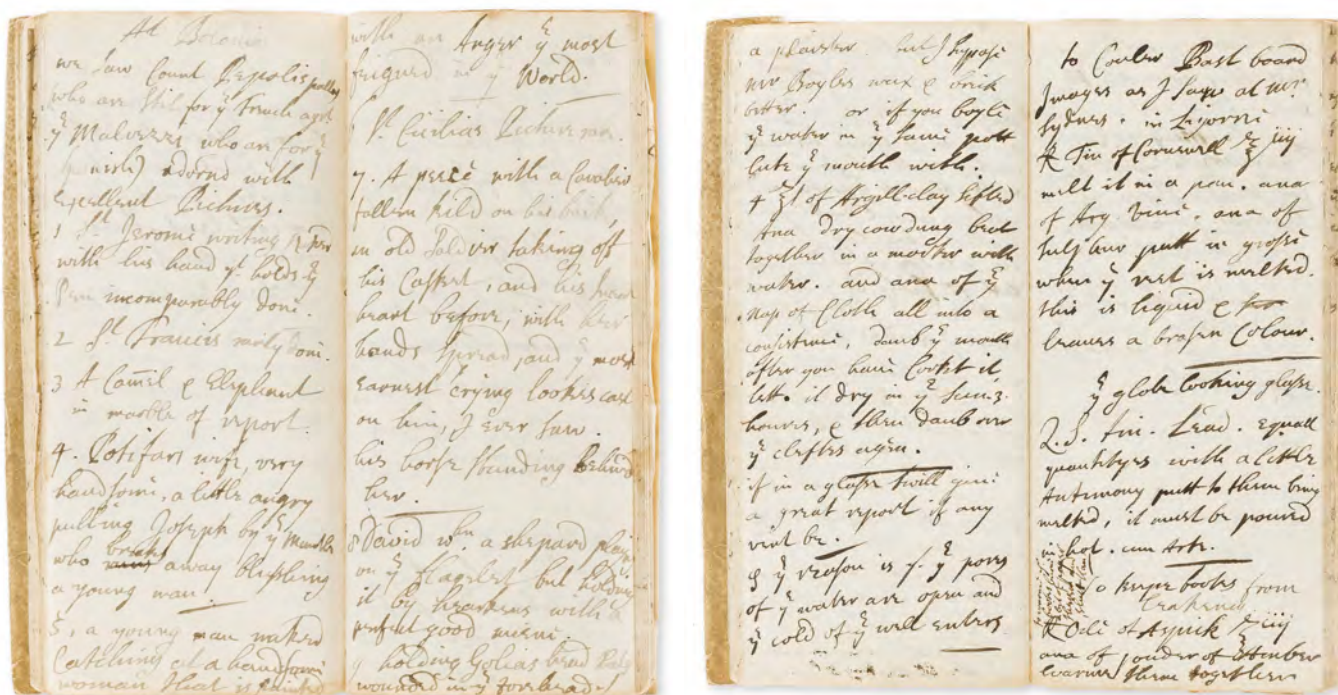 At Bolonia
we saw Count Pepolis pallas
who are stil for yᵉ French agst
yᵉ Malvezzs who are for yᵉ
adornd with
Excellent Pictures.
1 Sᵗ. Jerome writing
with his hand yᵗ holds yᵉ
Pen incomparably done.
2 Sᵗ. Francis rarly done.
3 A Camel & Elephant
in marble of report.
4. Potifars wife, very
handsome, a little angry
pulling Joseph by yᵉ Mantle
who breaks away blushing
a young man.
5, a young man naked
Catching at a handsome
woman that is
with an Anger yᵉ most
feigned in yᵉ World.
Sᵗ. Cicilias Picture
7. A peece with a Cavalier
fallen kild on his back,
an old Soldier taking off
his Casket, and his
heart before, with her
hands spread, and yᵉ most
Earnest crying lookes cast
on him, I ever saw.
his horse standing behind
her.
8 David wⁿ a shepard
on yᵉ flagelet but holding
it by hearkens with a
perfect good miene.
9 holding Golias head
wounded in yᵉ forehead
a plaister. but I suppose
mr Boyles wax & brick
better. or if you boyle
yᵉ water in yᵉ same pott
lute yᵉ mouth with.
of Argill-clay sifted
Ana dry cow dung beat
together in a morter with
water. and ana of yᵉ
nap of Cloth all into a
consistence, daub yᵉ mouth
after you have Corkt it
lett it dry in yᵉ sun 3.
houres, & then daub over
yᵉ clefts agen.
if in a glasse twill give
a great report if any
vent be.
yᵉ reason is yᵉ pores
of yᵉ water are open and
yᵉ cold of yᵉ well enters
to Couler Past board
Images as I saw at mr.
in Ligorne
℞ Tin of Cornewell ℥ iiij
melt it in a pan. ana
of Arg. vive. ana of
Sulphur putt in
when yᵉ rest is melted.
this is liquid &
leaves a brasen Colour.
yᵉ globe looking glasse.
Q.S. tin. Lead. Equall
quantityes with a little
Antimony putt to them being
melted, it must be poured
hot. cum Arte.
To keepe bookes from
℞ Ole of Aspick ℥ iiij
ana of pouder of Amber
warme them together